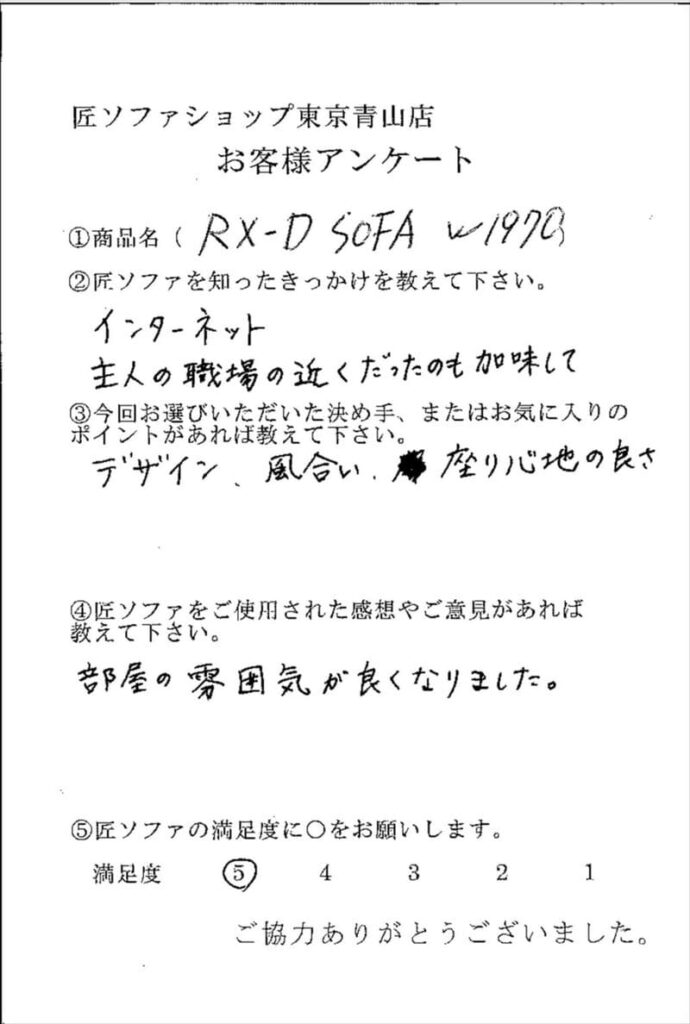 匠ソファショップ東京青山店
お客様アンケート
①商品名（ RX-D SOFA w1970）
②匠ソファを知ったきっかけを教えて下さい。
インターネット
主人の職場の近くだったのも加味して
③今回お選びいただいた決め手、またはお気に入りの
ポイントがあれば教えて下さい。
デザイン、風合い、座り心地の良さ
④匠ソファをご使用された感想やご意見があれば
教えて下さい。
部屋の雰囲気が良くなりました。
⑤匠ソファの満足度に〇をお願いします。
満足度 5 4 3 2 1
ご協力ありがとうございました。